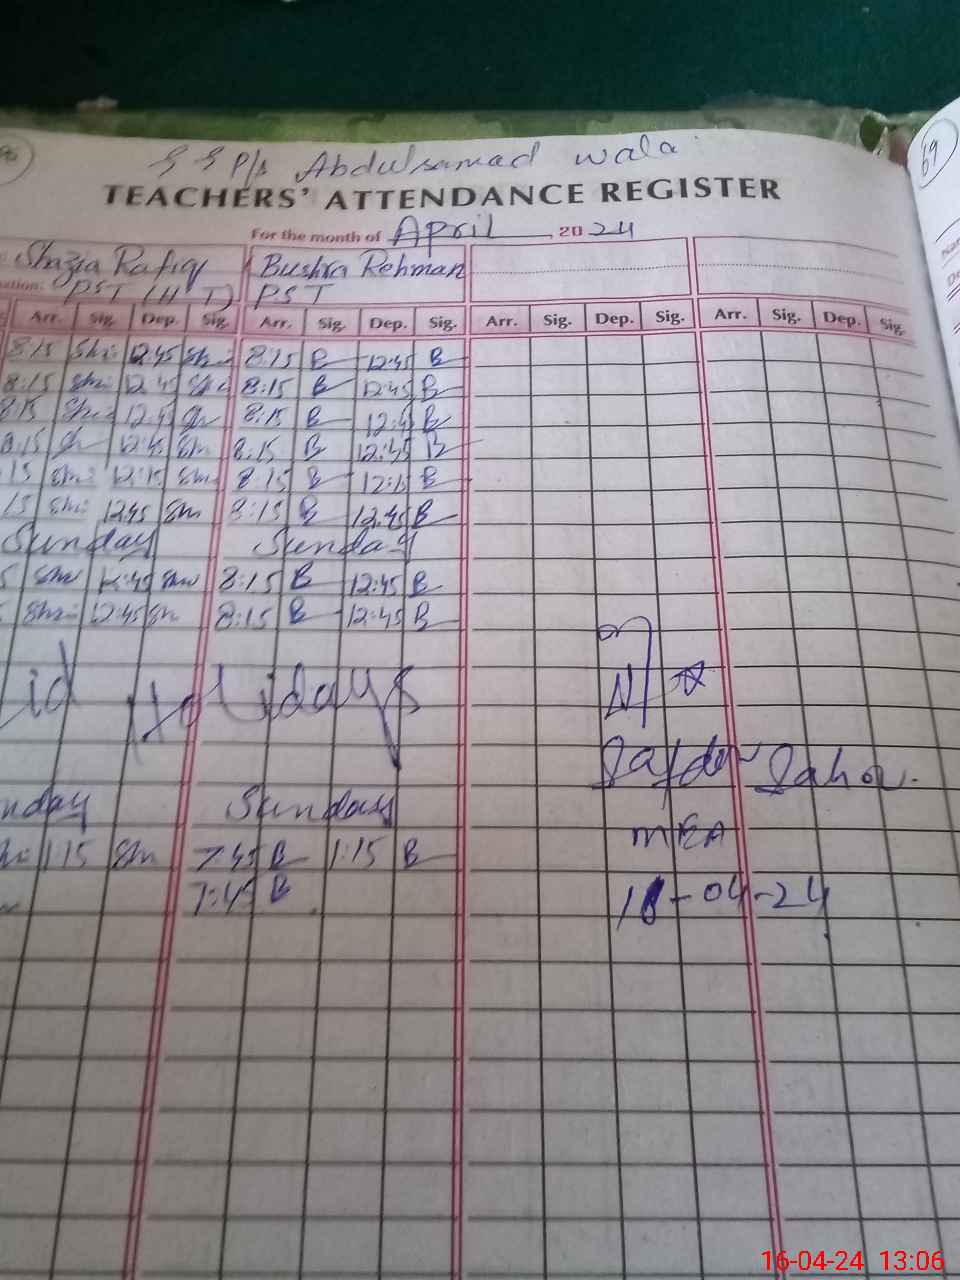 69
P/s Abdulsamad wala
TEACHERS' ATTENDANCE REGISTER
For the month of April 2024
Shazia Rafiq Bushra Rehman
PST (H T) PST
Arr. Sig. Dep. Sig. Arr. Sig. Dep. Sig. Arr. Sig. Dep. Sig. Arr. Sig. Dep. Sig.
8:15 Shi 12:45 Sh 8:15 B 12:45 B
8:15 Shi 12:45 8:15 B 12:45 B
8:15 12:45 Sh 8:15 B 12:45 B
8:15 Sh 12:45 Sm 8:15 B 12:45 B
15 Shi 12:15 Sm 8:15 B 12:15 B
15 Shi 12:45 Sm 8:15 B 12:45 B
Sunday Sunday
12:45 8:15 B 12:45 B
12:45 Sh 8:15 B 12:45 B
id Holidays
nday Sunday
MEA
1:15 Sm 7:45 B 1:15 B
7:45 B
-04-24
16-04-24 13:06